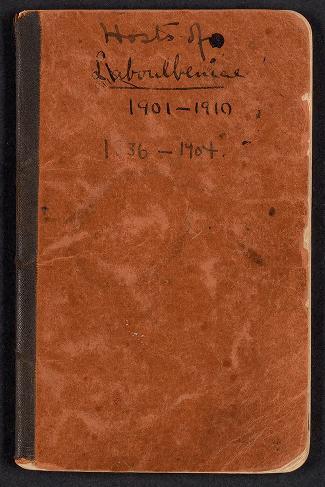 Hosts of
Laboulbeniae
1901-1910
1 36 - 1904.